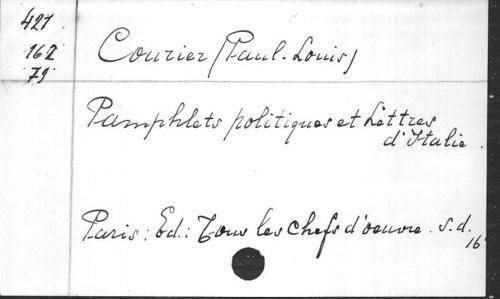 421
162
79
Courier (Paul-Louis)
Pamphlets politiques et Lettres
d'Italie.
Paris: Ed.: Tous les Chefs d'oeuvre. s.d.
16°